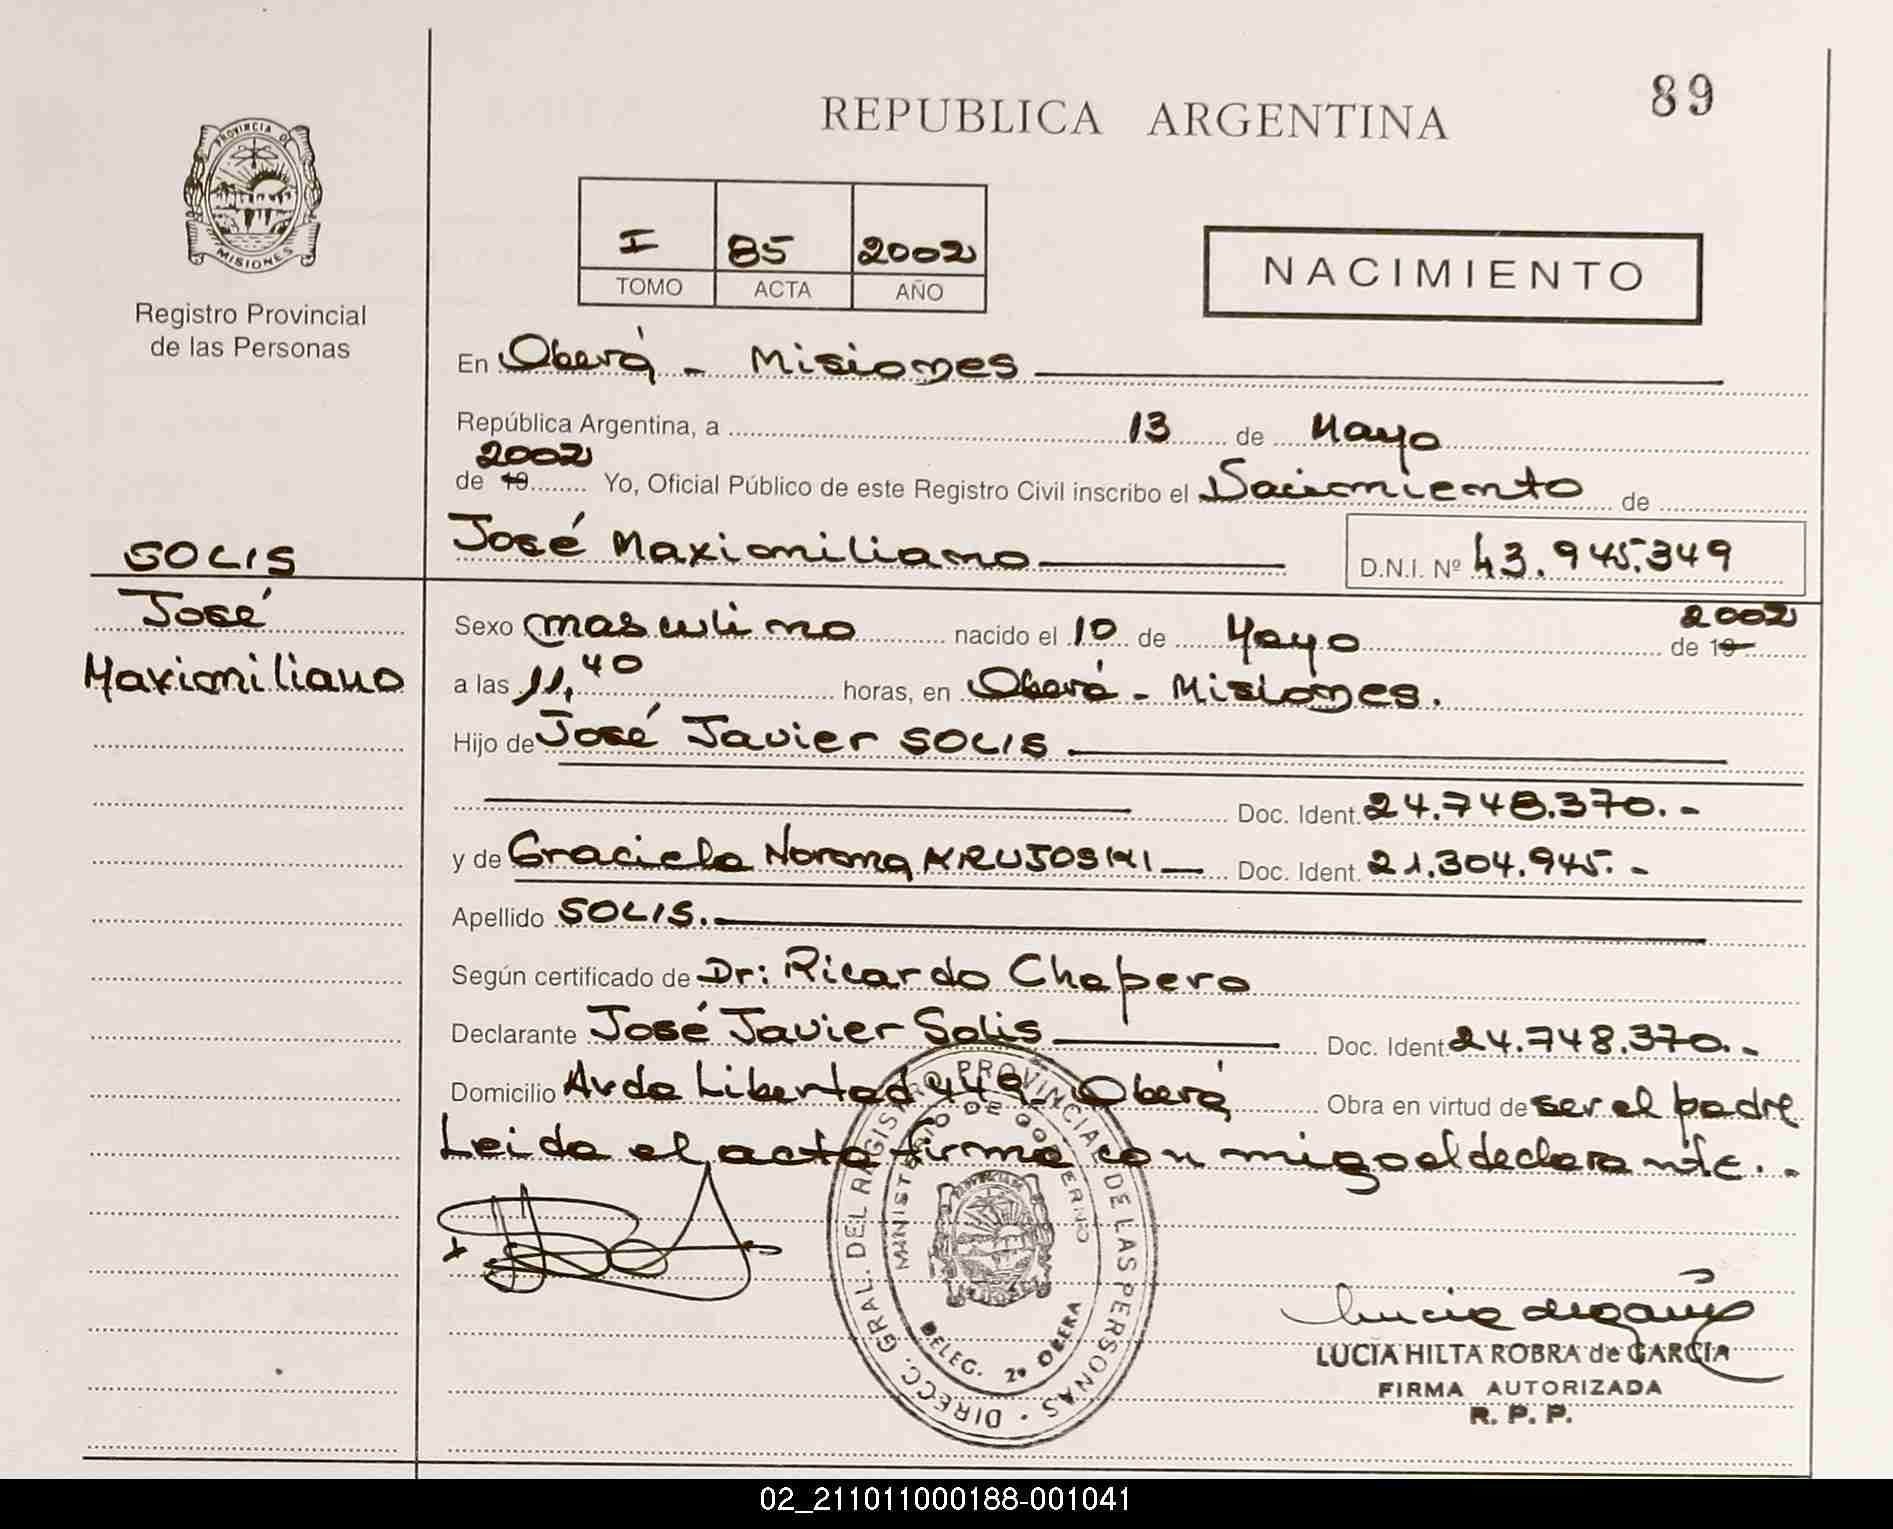 89
REPUBLICA ARGENTINA
PROVINCIA D
MISIONES
Registro Provincial
de las Personas
I 85 2002
TOMO ACTA AÑO
NACIMIENTO
En Oberá - Misiones
República Argentina, a 13 de Mayo
2002
de 19 Yo, Oficial Público de este Registro Civil inscribo el Nacimiento de
José Maximiliano D.N.I. Nº 43.945.349
SOLIS
José
Maximiliano
Sexo masculino nacido el 10 de Mayo de 19 2002
a las 11,40 horas, en Oberá - Misiones.
Hijo de José Javier SOLIS
Doc. Ident. 24.748.370.-
y de Graciela Norma KRUJOSKI Doc. Ident. 21.304.945.-
Apellido SOLIS.
Según certificado de Dr: Ricardo Chapero
Declarante José Javier Solis Doc. Ident. 24.748.370.-
Domicilio Avda Libertad 449 Oberá Obra en virtud de ser el padre
Leida el acta firma con migo el declarante.-
DIRECC. GRAL. DEL REGISTRO PROVINCIAL DE LAS PERSONAS
MINISTERIO DE GOBIERNO
DELEG. 2º OBERA
LUCIA HILTA ROBRA de GARCIA
FIRMA AUTORIZADA
R. P. P.
02_211011000188-001041